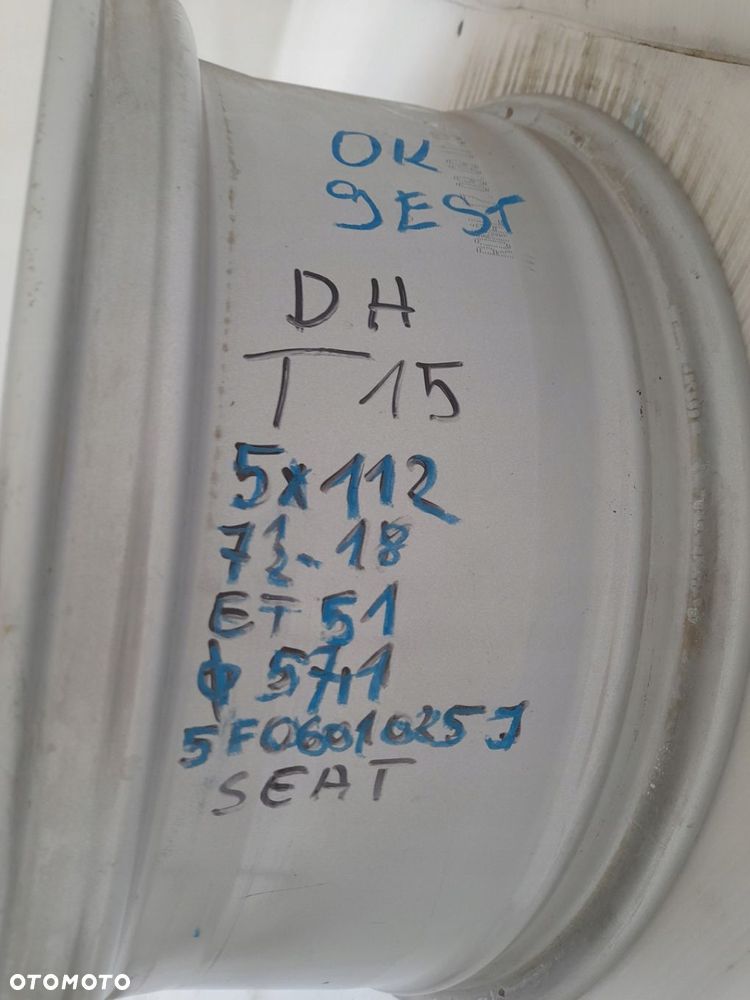 OK
JEST
DH
T 15
5x112
7½-18
ET 51
ϕ 57,1
5F0601025J
SEAT
OTOMOTO